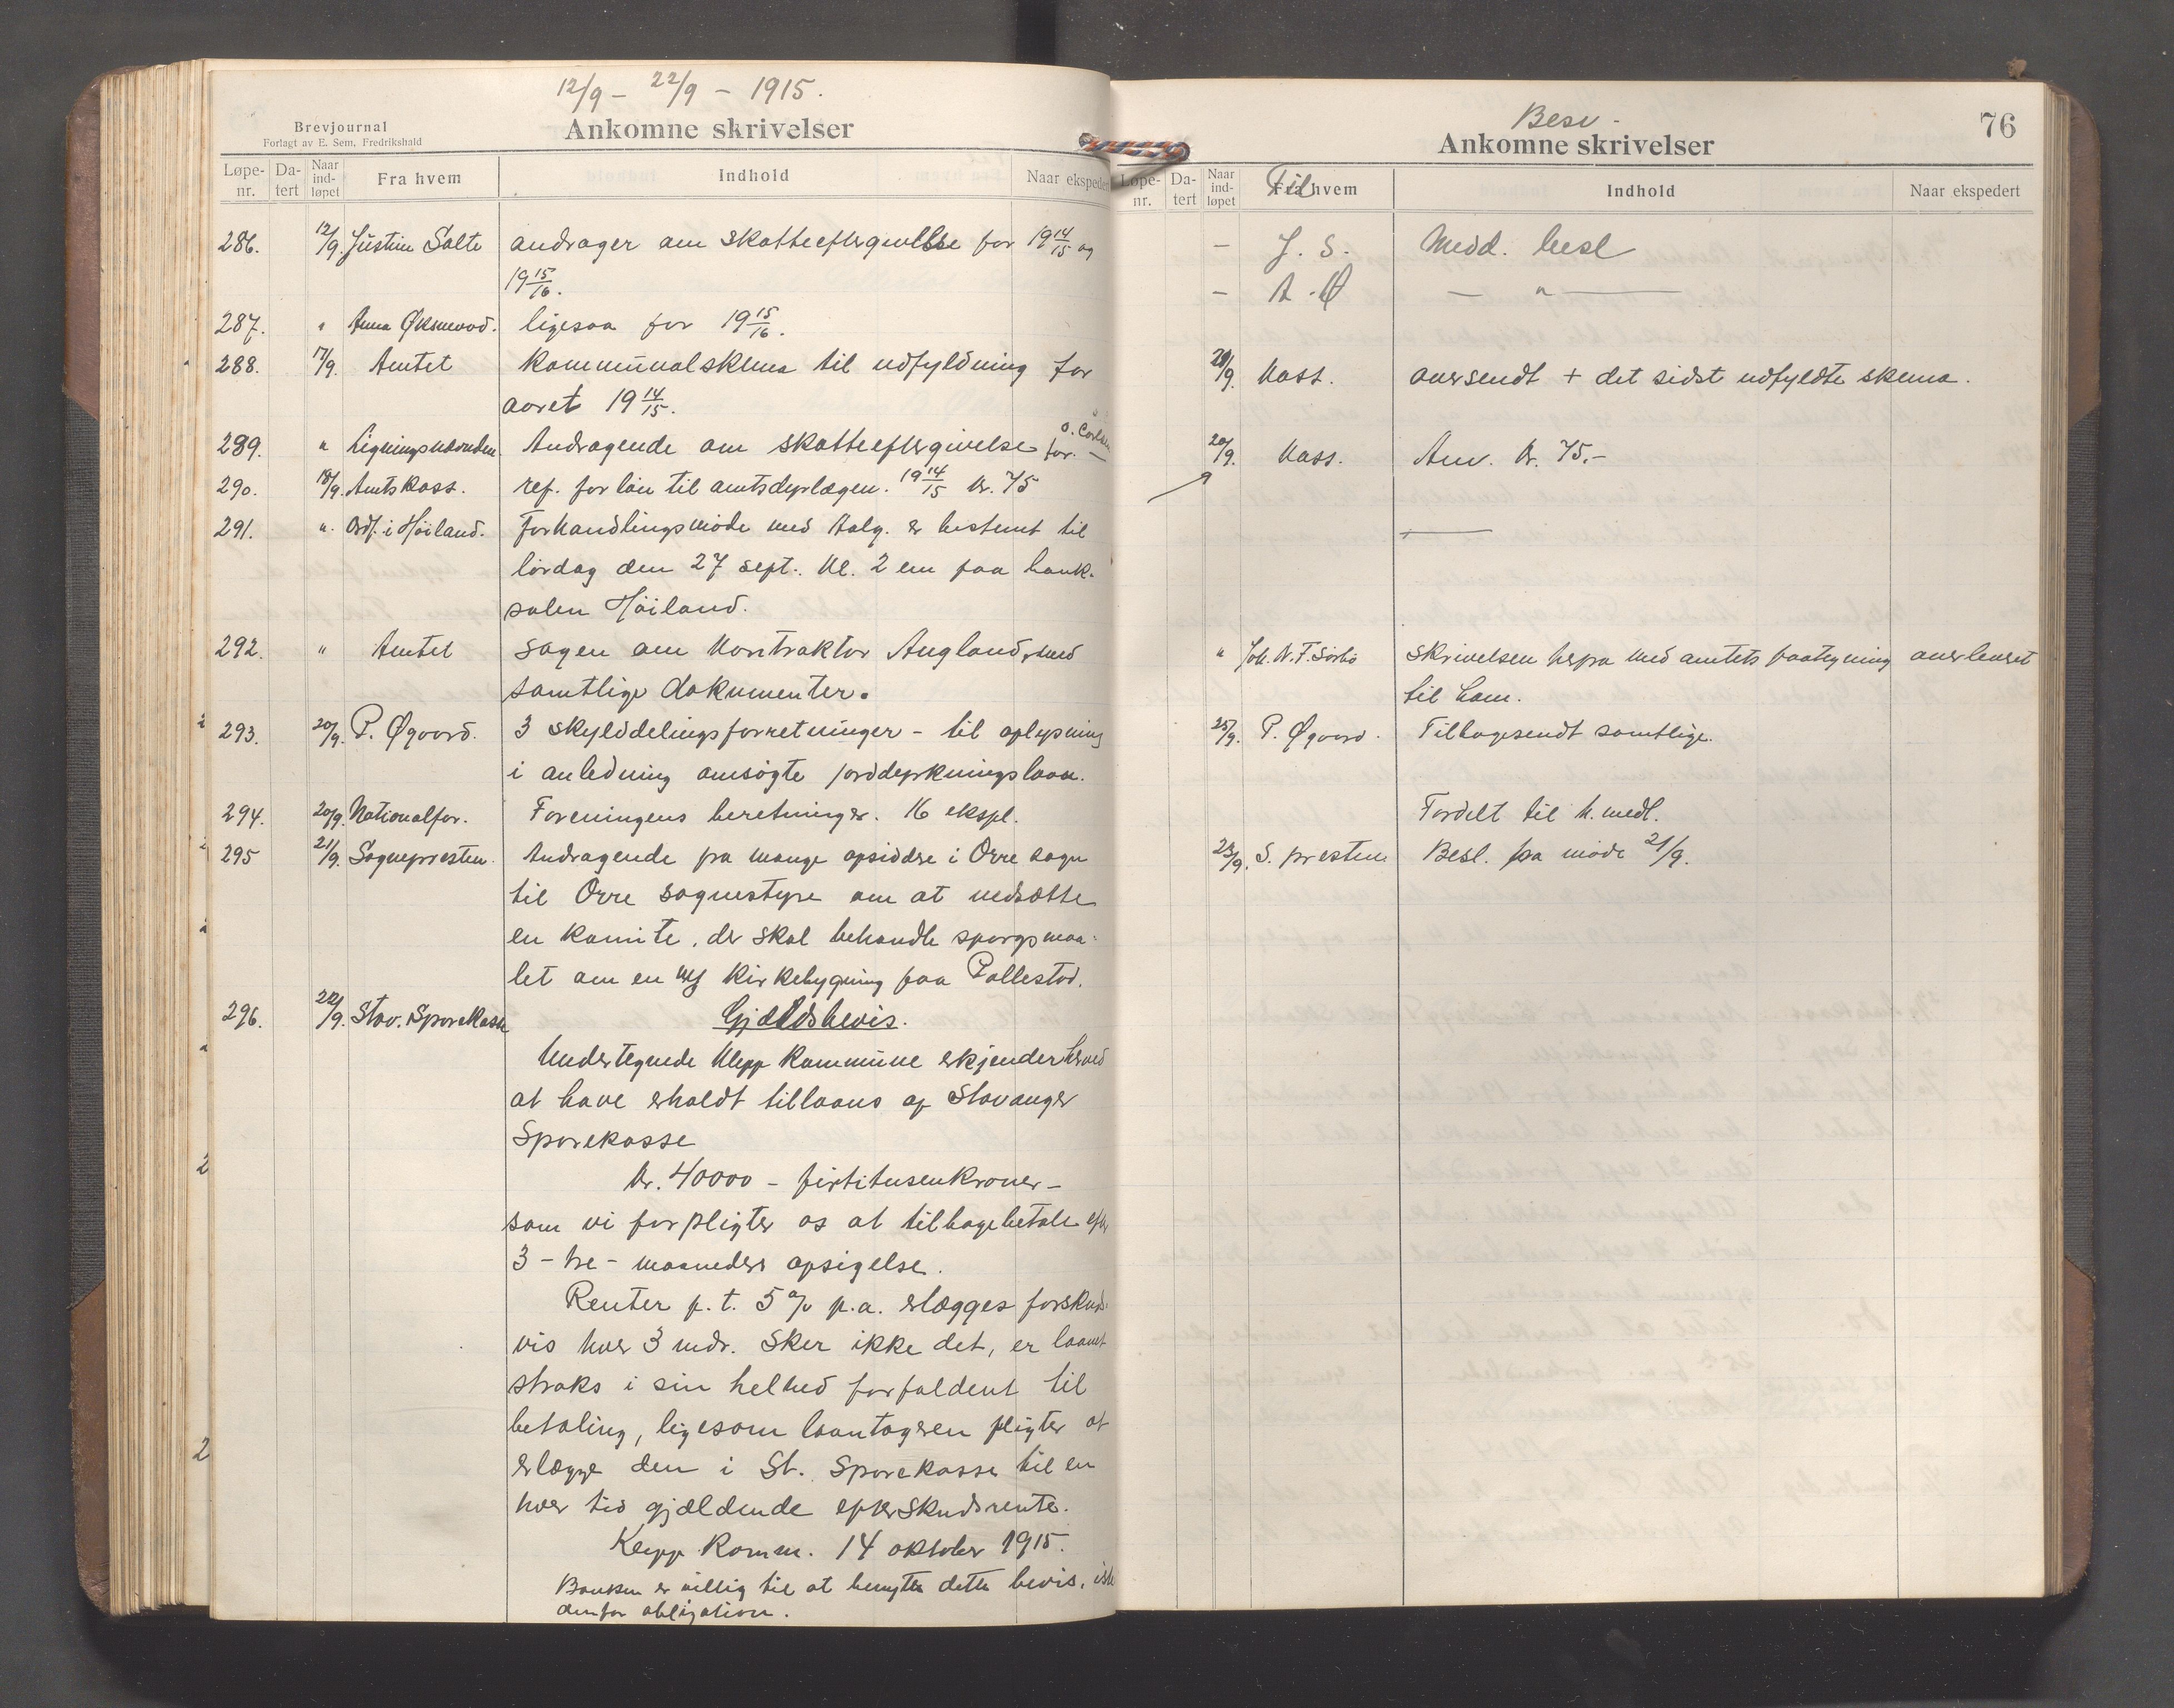 12/9 – 22/9 – 1915.
Brevjournal
Forlagt av E. Sem, Fredrikshald
Ankomne skrivelser
Løpe-nr. Da-tert Naar ind-løpet Fra hvem Indhold Naar ekspedert
286. 12/9. Justine Salte andrager om skatteeftergivelse for 19 14/15 og
19 15/16.
287. " Anna Øksnevad. ligesaa for 19 15/16.
288. 17/9. Amtet Kommunalskema til udfyldning for
aaret 19 14/15.
289. " Ligningsnævnden Andragende om skatteeftergivelse for O.
290. 18/9. Amtskass. ref. for løn til amtsdyrlægen. 19 14/15 kr. 75
291. " Ordf. i Høiland. Forhandlingsmøde med Aalg. er bestemt til
lørdag den 27 sept. kl. 2 em paa bank-
salen Høiland.
292. " Amtet sagen om Kontraktør Augland, med
samtlige dokumenter.
293. 20/9. P. Øgaard. 3 skylddelingsforretninger – til oplysning
i anledning ansøgte jorddyrkningslaan.
294. 20/9. Nationalfor. Foreningens beretninger. 16 ekspl.
295 21/9. Sognepresten. Andragende fra mange opsiddere i Orre sogn
til Orre sognestyre om at nedsætte
en komite, der skal behandle spørgsmaa-
let om en ny kirkebygning paa Pollestad.
296. 22/9. Stav. Sparekasse Gjældsbevis.
Undertegnede Klepp Kommune erkjender herved
at have erholdt tillaans af Stavanger
Sparekasse
Kr. 40000 – firtitusenkroner –
som vi forpligter os at tilbagebetale efter
3 – tre – maaneders opsigelse.
Renter p. t. 5 % p.a. erlægges forskuds-
vis hver 3 mdr. Sker ikke det, er laanet
straks i sin helhed forfaldent til
betaling, ligesom laantageren pligter at
erlægge den i St. Sparekasse til en
hver tid gjældende efterskudsrente.
Klepp Komm. 14 oktober 1915.
Banken er villig til at benytte dette bevis, istedenfor obligation.
Besv.
Ankomne skrivelser
76
Løpe-nr. Da-tert Naar ind-løpet Fra hvem Til Indhold Naar ekspedert
– J. S. Medd. besl
– A. Ø – " –
20/9. Kass. oversendt + det sidst udfyldte skema.
20/9. Kass. Anv. kr. 75.–
" Joh. K. T. Sørbø skrivelsen herfra med amtets paategning overleveret
til ham.
25/9. P. Øgaard. Tilbagesendt samtlige.
Fordelt til h. medl.
23/9. S. presten Besl. fra møde 21/9.